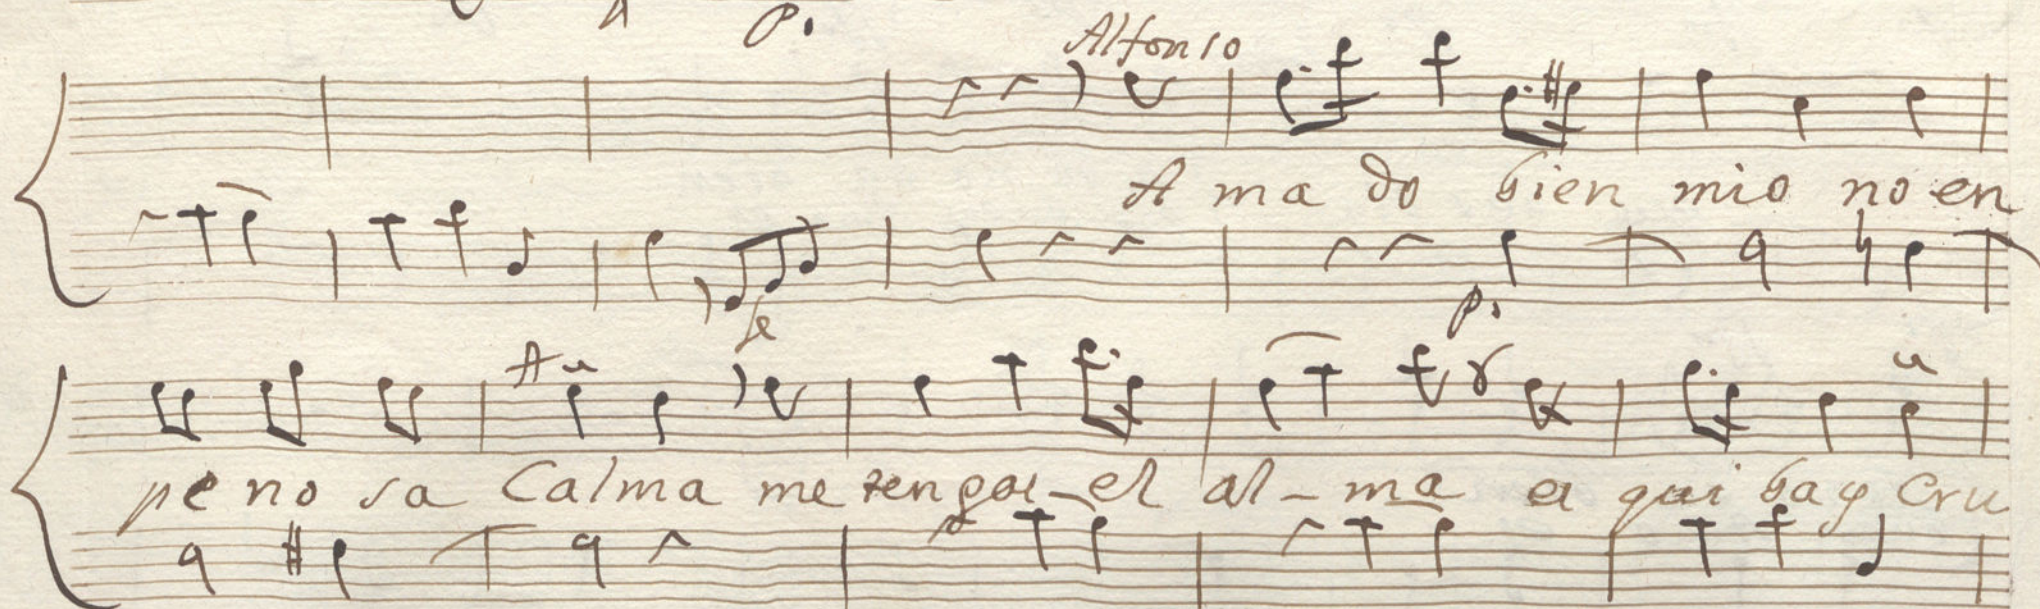 p.
Alfonso
A ma do bien mio no en
p.
fe
A
pe no sa Calma me tenga - el al - ma a qui bay Cru